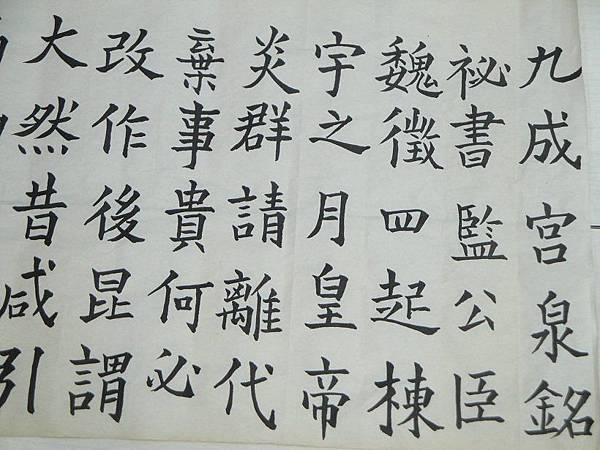 九成宮泉銘
祕書監公臣
魏徵四起棟
宇之月皇帝
炎群請離代
棄事貴何必
改作後昆謂
大然昔咸引